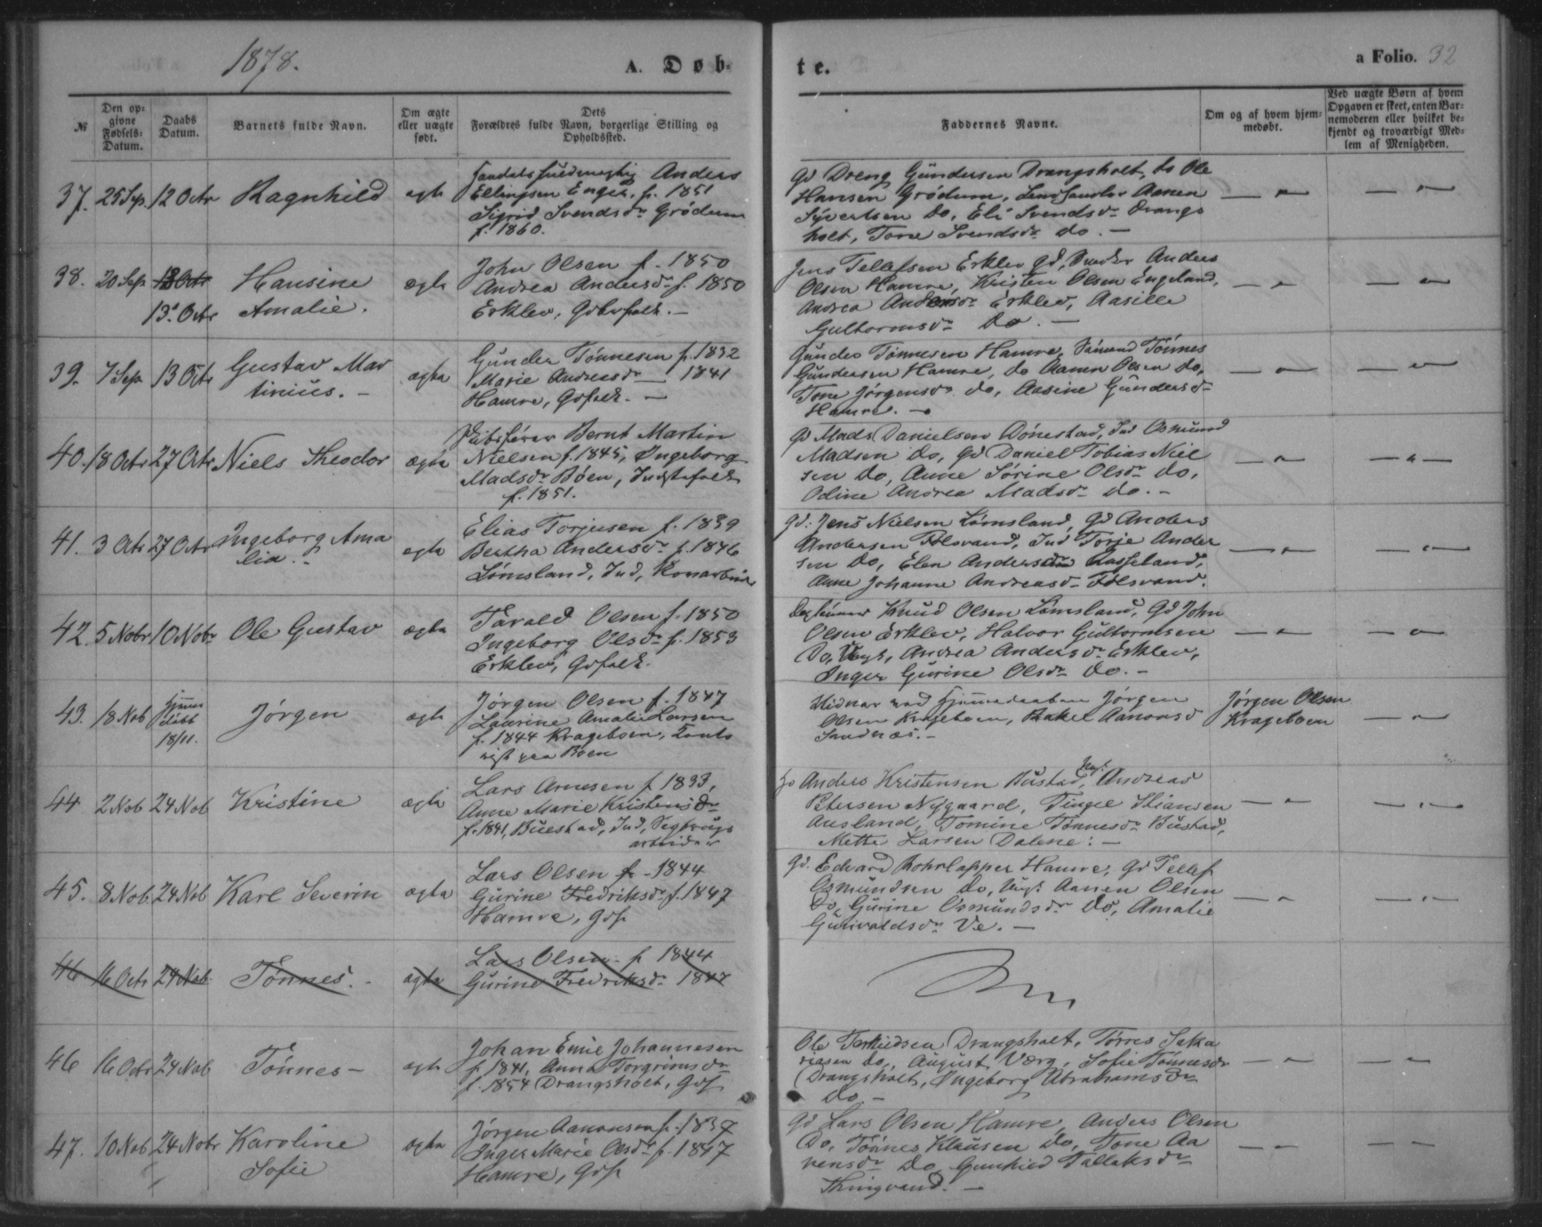 1878.
A. Døb-
te.
a Folio. 32
№
Den op-
givne
Fødsels-
Datum.
Daabs
Datum.
Barnets fulde Navn.
Om ægte
eller uægte
født.
Dets
Forældres fulde Navn, borgerlige Stilling og
Opholdssted.
Faddernes Navne.
Om og af hvem hjem-
medøbt.
Ved uægte Børn af hvem
Opgaven er skeet, enten Bar-
nemoderen eller hvilket be-
kjendt og troværdigt Med-
lem af Menigheden.
37. 25 Sep. 12 Octr Ragnhild ægte
Anders
Ellingsen Enget. f. 1851
Sigrid Svendsdr Grødum
f. 1860.
Gd Dreng Gundersen Drangsholt, do Ole
Hansen Grødum, Aanen
Syvertsen do, Eli Svendsdr Drangs
holt, Tone Svendsdr do. —
38. 20 Sep. 13 Octr
13 Octr
Hansine
Amalie.
ægte
John Olsen f. 1850
Andrea Andersdr f. 1850
Erklev, Gdbrfolk. —
Jens Tellefsen Erklev Gd, Anders
Olsen Hamre, Kristen Olsen Engeland,
Andrea Andersdr Erklev, Aasille
Guttormsdr do. —
39. 7 Sep. 13 Octr
Gustav Mar
tinius. —
ægte
Gunder Tønnesen f. 1832
Marie Andreasdr — 1841
Hamre, Gdfolk. —
Gunder Tønnesen Hamre, Tønnes
Gundersen Hamre, do Aanen Olsen do,
Tone Jørgensdr do, Aasine Gundersdr
Hamre. —
40. 18 Octr 27 Octr Niels Theodor ægte
Skibsfører Bernt Martin
Nielsen f. 1845, Ingeborg
Madsdr Bøen, Indstefolk
f. 1851.
Gd Mads Danielsen Dønestad, Ind Osmund
Madsen do, Gd Daniel Tobias Niel
sen do, Anne Sørine Olsdr do,
Odine Andrea Madsdr do. —
41. 3 Octr 27 Octr
Ingeborg Ama
lia. —
ægte
Elias Torjusen f. 1839
Bertha Andersdr f. 1846
Lømsland, Ind,
Gd: Jens Nielsen Lømsland, Gd Anders
Andersen Følsvand, Ind Torje Ander
sen do, Elen Andersdr Aasseland,
Anne Johanne Andreasdr Følsvand.
42. 5 Nobr 10 Nobr Ole Gustav ægte
Tarald Olsen f. 1850
Ingeborg Olsdr f. 1853
Erklev, Gdfolk.
Knud Olsen Lømsland, Gd John
Olsen Erklev, Halvor Guttormsen
do, Ungk, Andrea Andersdr Erklev,
Inger Gurine Olsdr do. —
43. 18 Nob
hjemme
døbt
18/11.
Jørgen ægte
Jørgen Olsen f. 1847
Laurine Amalie Larsen
f. 1844 Krageboen,
Boen
Vidner ved hjemmedaaben Jørgen
Olsen Krageboen, Rakel Aanonsd
Sandnes. —
Jørgen Olsen
Krageboen
44 2 Nob 24 Nob Kristine ægte
Lars Arnesen f 1833,
Anne Marie Kristensdr
f. 1841, Buestad, Ind,
arbeider
Gd Anders Kristensen Bustad, Ungk. Andreas
Petersen Nygaard,
Ausland, Tomine Tønnesdr Bustad,
Mette Larsen Dalene. —
45. 8 Nob 24 Nob Karl Severin ægte
Lars Olsen f. 1844
Gurine Fredriksdr f. 1847
Hamre, Gdf.
Gd. Edvard Hamre, Gd Tellef
Osmundsen do, Ungk Aanen Olsen
do, Gurine Osmundsdr do, Amalie
Gunvaldsdr Ve. —
46 16 Octr 24 Nob Tønnes. — ægte
Lars Olsen f 1844
Gurine Fredriksdr 1847
46 16 Octr 24 Nob Tønnes — ægte
Johan Emil Johannesen
f. 1841, Anna Torgrimsdr
f. 1854 Drangsholt, Gdf.
Ole Terkildsen Drangsholt, Tønnes Saka
riasen do, August Værg, Sofie Tønnesdr
Drangsholt, Ingeborg Abrahamsdr
do. —
47. 10 Nob 24 Nobr
Karoline
Sofie
ægte
Jørgen Aanonsen f. 1837
Inger Marie Olsdr f. 1847
Hamre, Gdf.
Gd Lars Olsen Hamre, Anders Olsen
do, Tønnes Klausen do, Tone Aa
nensdr do, Gunhild Tallaksdr
Thingvand. —